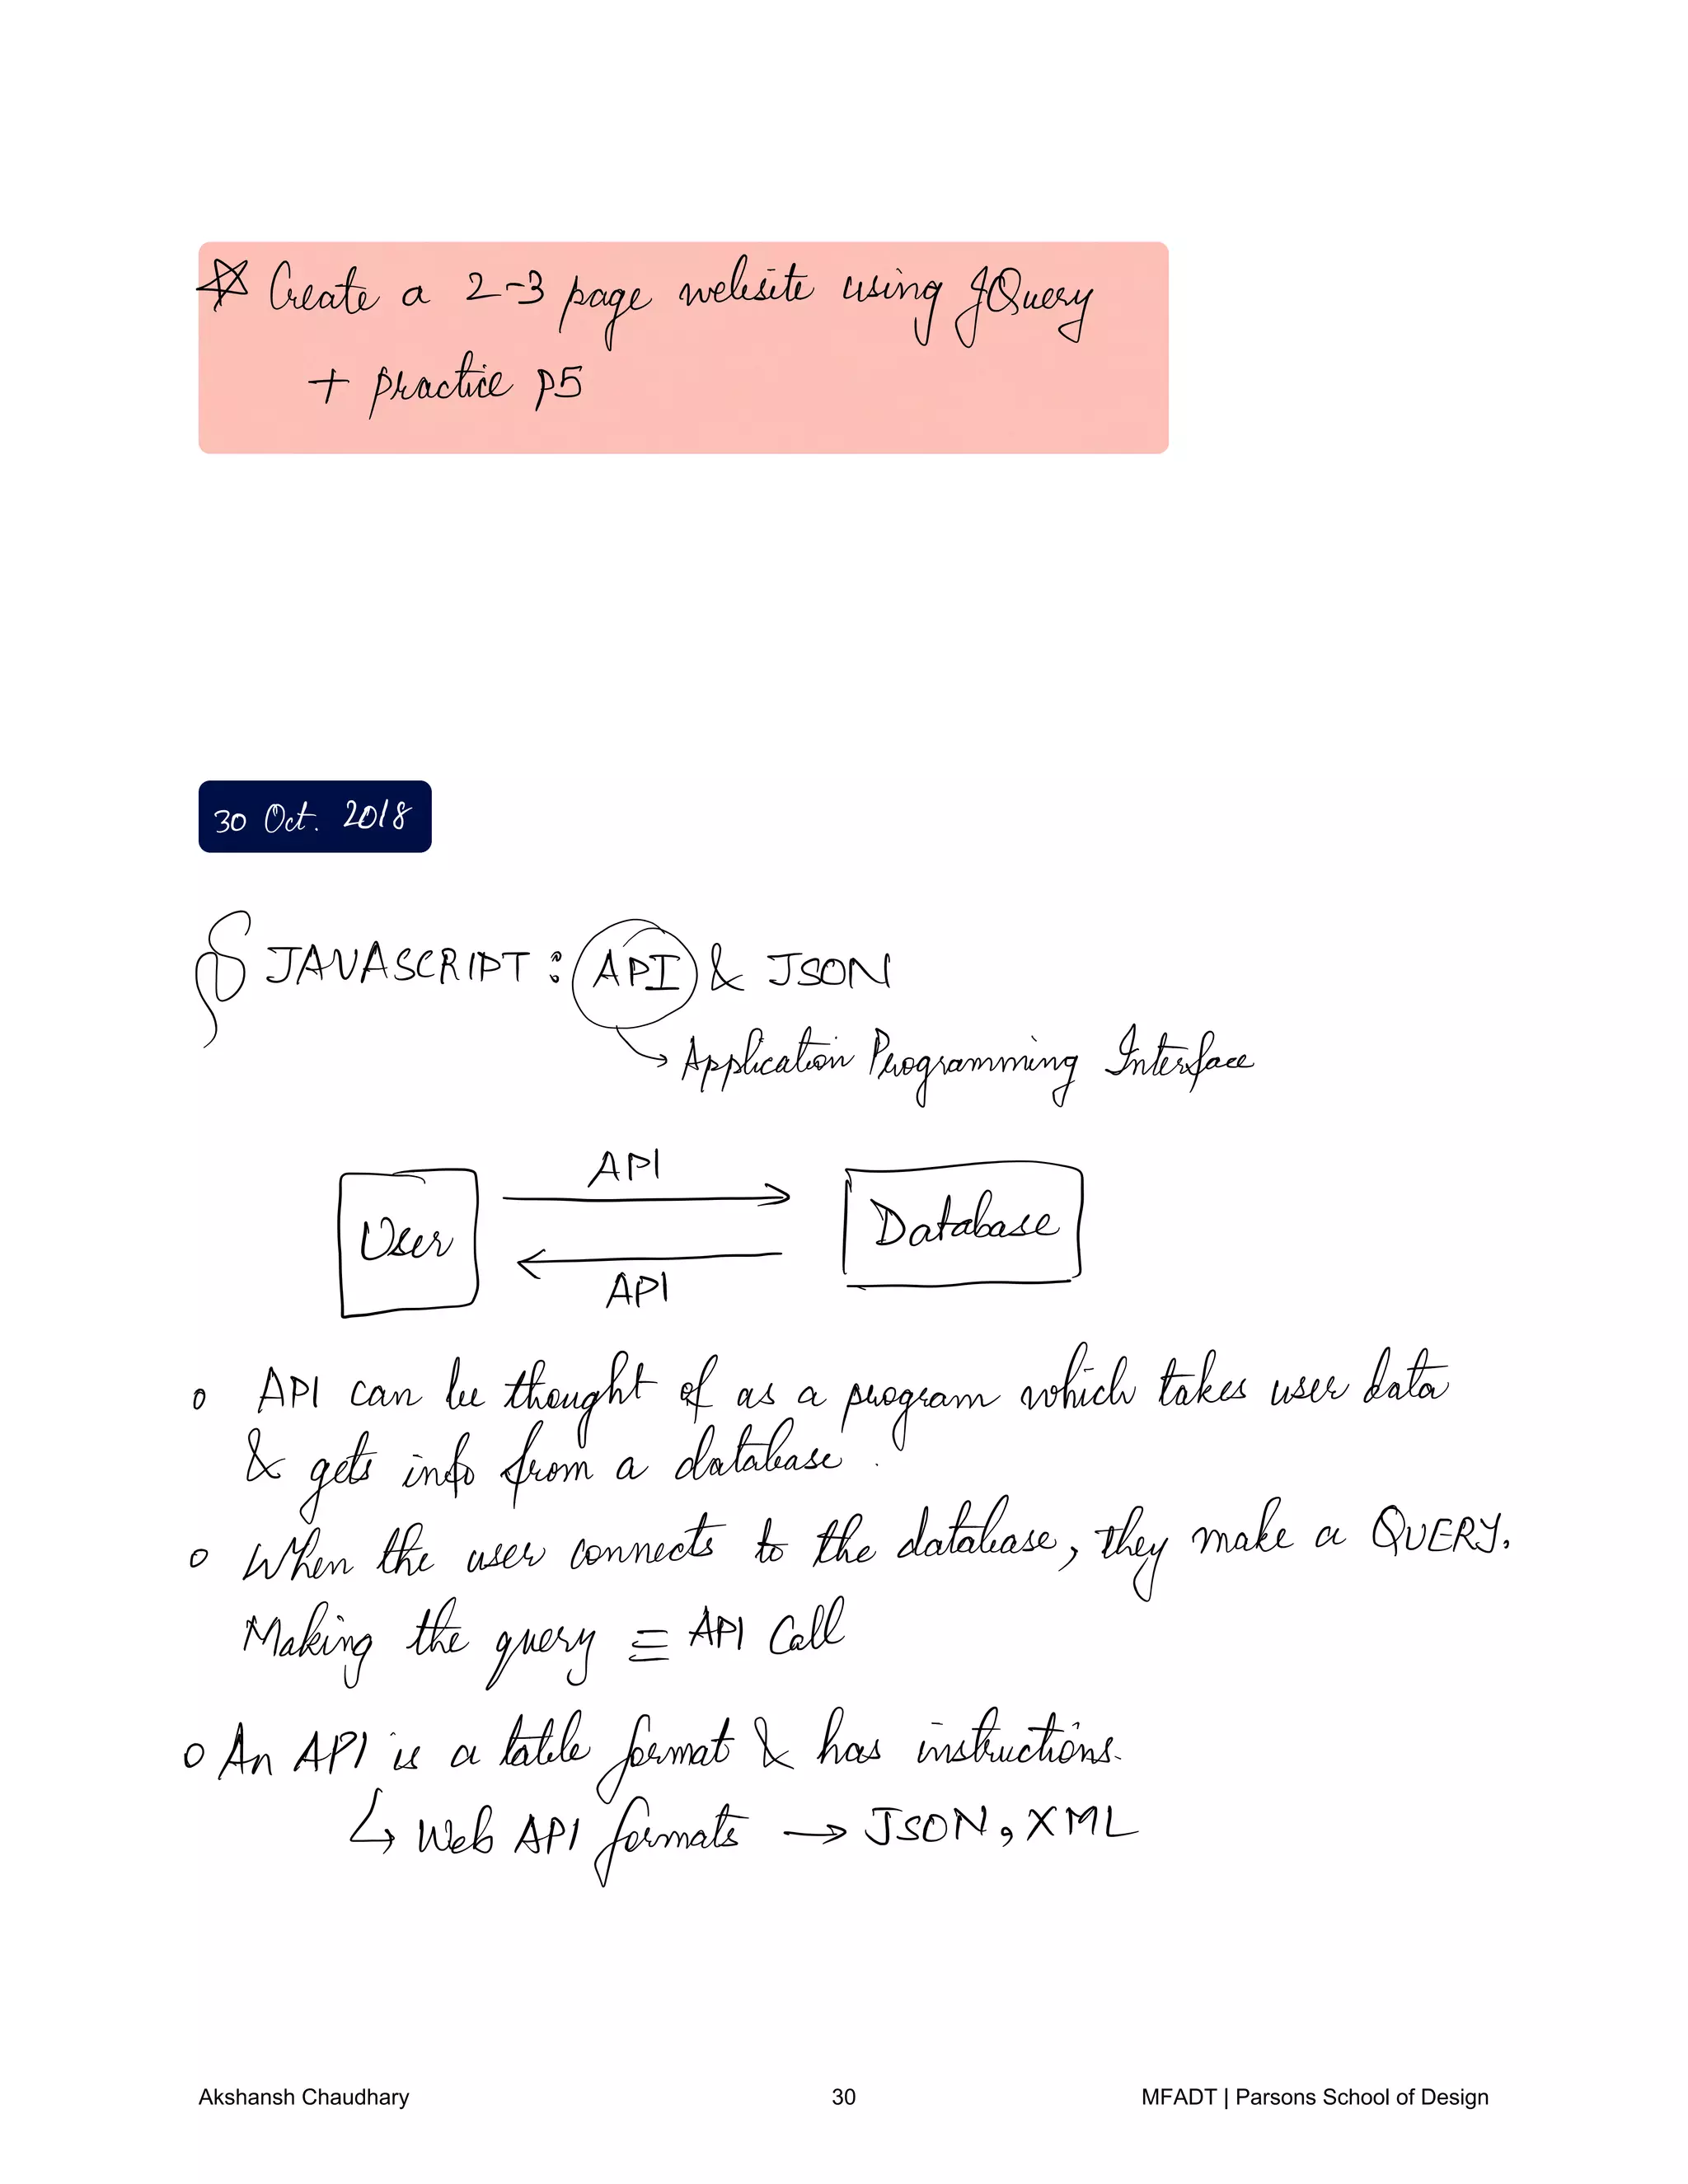 ☆ Create a 2-3 page website using JQuery
+ practice p5
30 Oct. 2018
§ JAVASCRIPT : API & JSON
↳ Application Programming Interface
API
User → Database
←
API
o API can be thought of as a program which takes user data
& gets info from a database.
o When the user connects to the database, they make a QUERY.
Making the query ≡ API Call
o An API is a table format & has instructions.
↳ Web API formats → JSON, XML
Akshansh Chaudhary 30 MFADT | Parsons School of Design